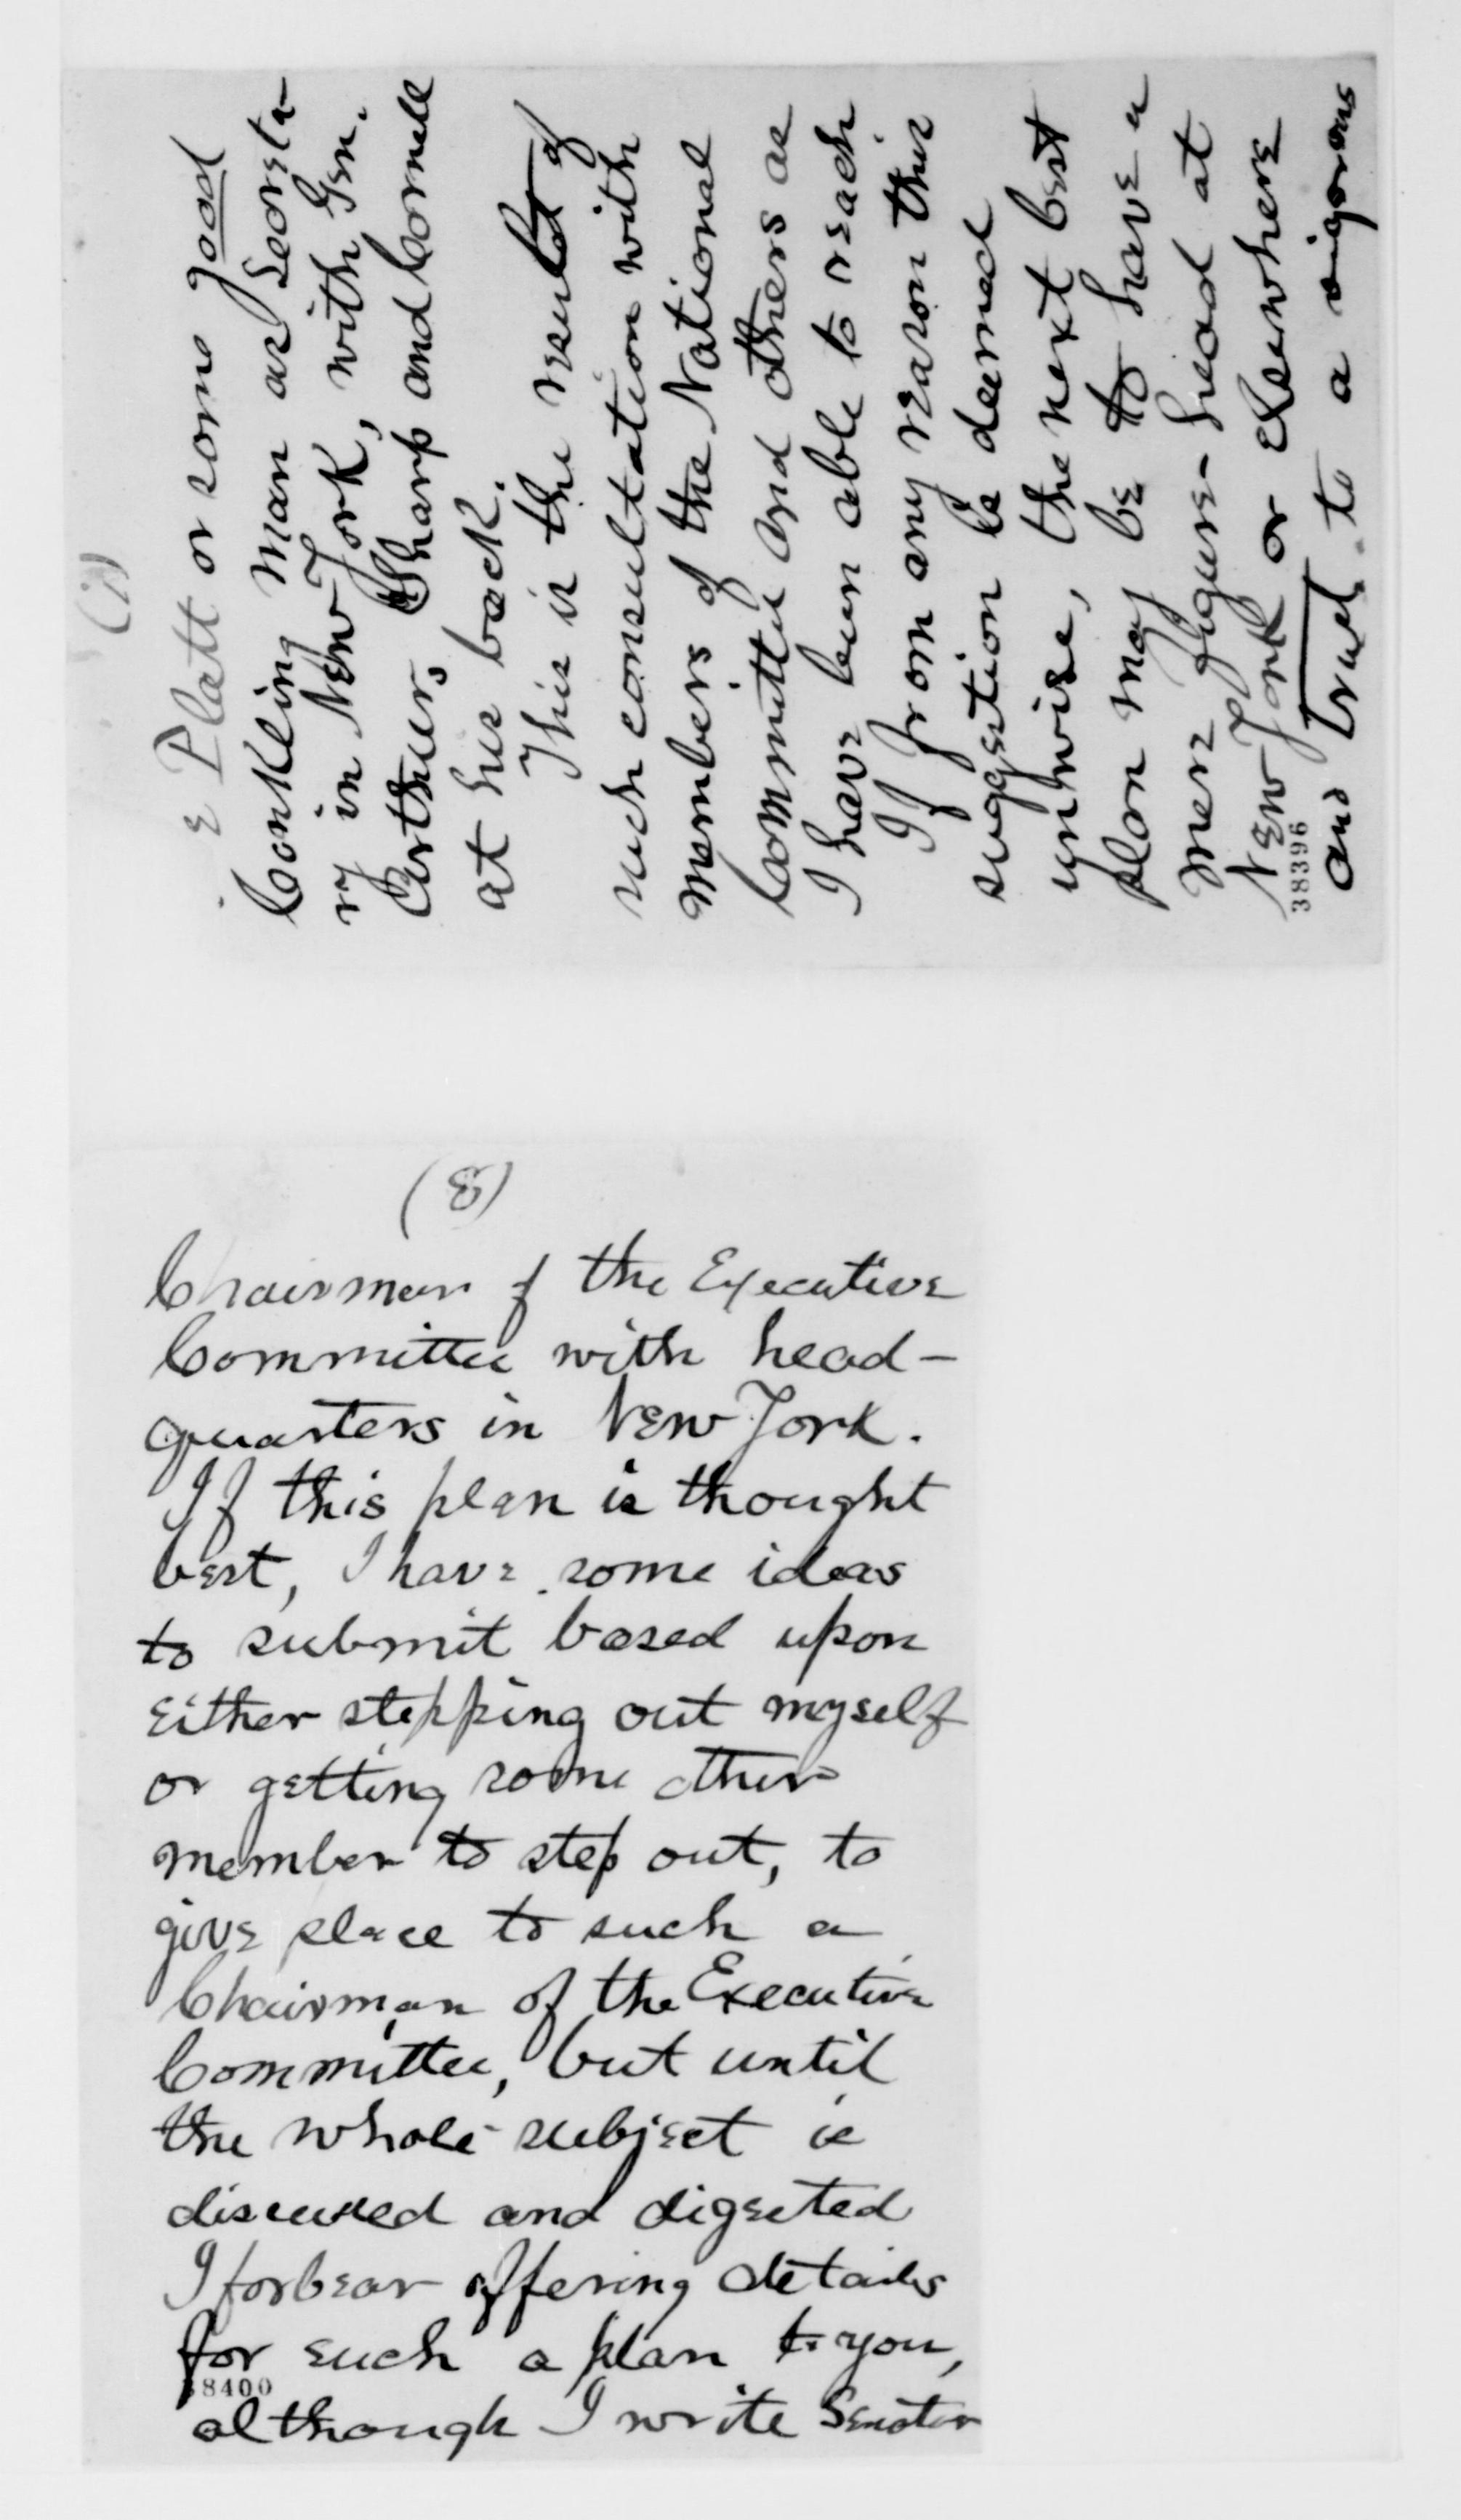 (7)
e Platt or some good
Conkling man as Secreta-
ry in New York, with Gen.
Arthur, Sharp and Cornell
at his back.
This is the result of
such consultation with
members of the National
Committee and others as
I have been able to reach
If from any reason this
suggestion is deemed
unwise, the next best
plan may be to have a
mere figure-head at
New York or elsewhere
and trust to a vigorous
38396
(8)
Chairman of the Executive
Committee with head-
quarters in New York.
If this plan is thought
best, I have some ideas
to submit based upon
either stepping out myself
or getting some other
member to step out, to
give place to such a
Chairman of the Executive
Committee, but until
the whole subject is
discussed and digested
I forbear offering details
for such a plan to you,
38400
although I write Senator